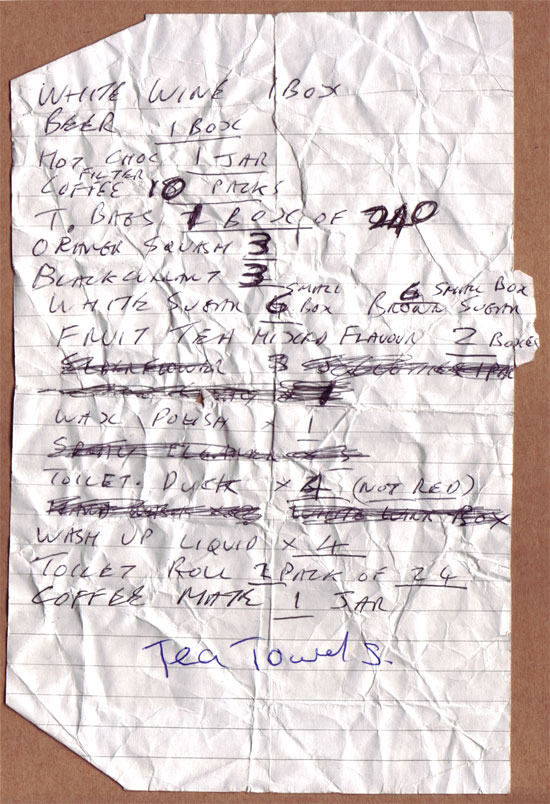 WHITE WINE 1 BOX
BEER 1 BOX
HOT CHOC 1 JAR
FILTER
COFFEE 10 PACKS
T. BAGS 1 BOX OF 240
ORANGE SQUASH 3
BLACKCURRANT 3
WHITE SUGAR 6 SMALL BOX BROWN SUGAR 6 SMALL BOX
FRUIT TEA MIXED FLAVOUR 2 BOXES
3
WAX POLISH × 1
TOILET. DUCK × 4 (NOT RED)
WASH UP LIQUID × 4
TOILET ROLL 2 PACK OF 24
COFFEE MATE 1 JAR
Tea Towels.